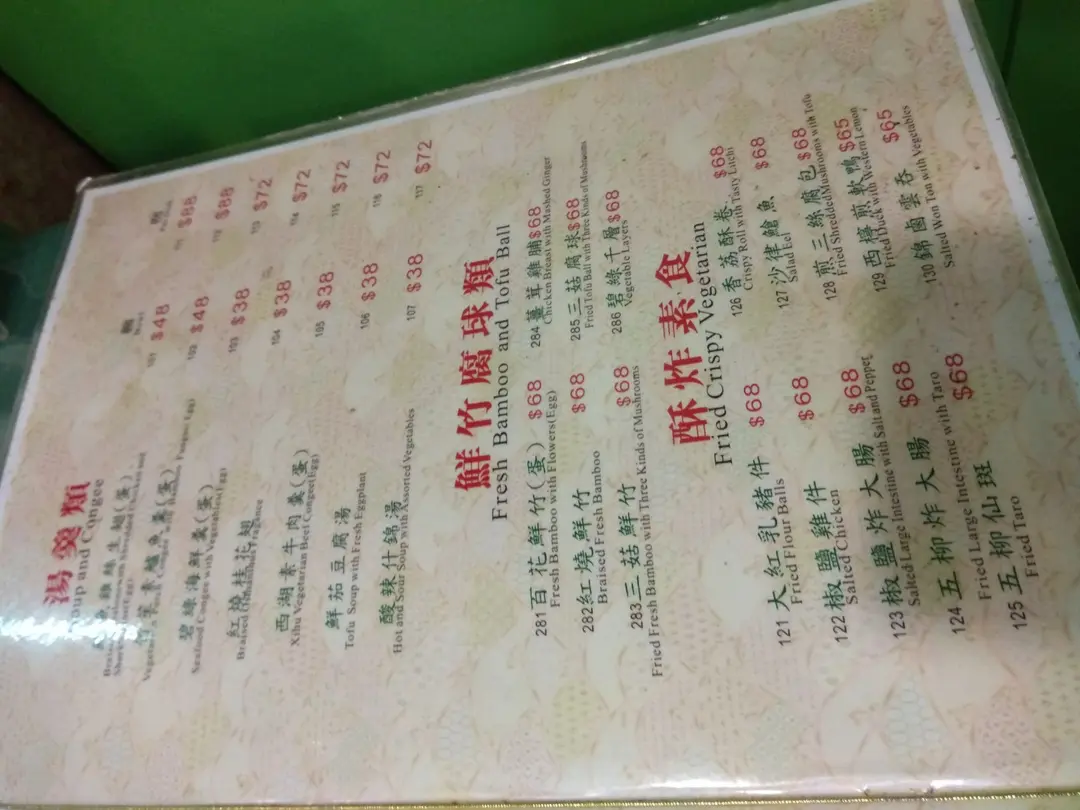 湯羹類
Soup and Congee
101 $48
111 $88
102 $48
112 $88
碧綠海鮮羹(蛋)
Seafood Congee with Vegetables(Egg)
103 $38
113 $72
紅燒桂花翅
104 $38
114 $72
西湖素牛肉羹(蛋)
Xihu Vegetarian Beef Congee(Egg)
105 $38
115 $72
鮮茄豆腐湯
Tofu Soup with Fresh Eggplant
106 $38
116 $72
酸辣什錦湯
Hot and Sour Soup with Assorted Vegetables
107 $38
117 $72
鮮竹腐球類
Fresh Bamboo and Tofu Ball
281 百花鮮竹(蛋) $68
Fresh Bamboo with Flowers(Egg)
282 紅燒鮮竹 $68
Braised Fresh Bamboo
283 三菇鮮竹 $68
Fried Fresh Bamboo with Three Kinds of Mushrooms
284 薑茸雞脯 $68
Chicken Breast with Mashed Ginger
285 三菇腐球 $68
Fried Tofu Ball with Three Kinds of Mushrooms
286 碧綠千層 $68
Vegetable Layers
酥炸素食
Fried Crispy Vegetarian
121 大紅乳豬件 $68
Fried Flour Balls
122 椒鹽雞件 $68
Salted Chicken
123 椒鹽炸大腸 $68
Salted Large Intestine with Salt and Pepper
124 五柳炸大腸 $68
Fried Large Intestine with Taro
125 五柳仙斑 $68
Fried Taro
126 香荔酥卷 $68
Crispy Roll with Tasty Litchi
127 沙律鰽魚 $68
Salad Eel
128 煎三絲腐包 $68
Fried Shredded Mushrooms with Tofu
129 西檸煎軟鴨 $65
Fried Duck with Western Lemon
130 錦鹵雲吞 $65
Salted Won Ton with Vegetables